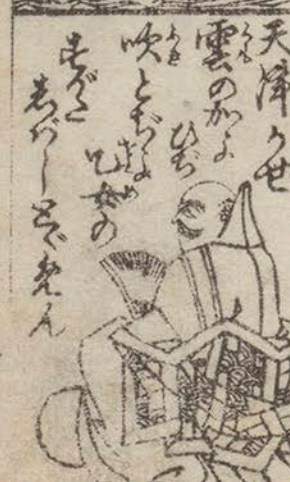 天津かせ
雲のかよ
ひぢ
吹とぢよ
乙女の
すがた
しばしとゞめん